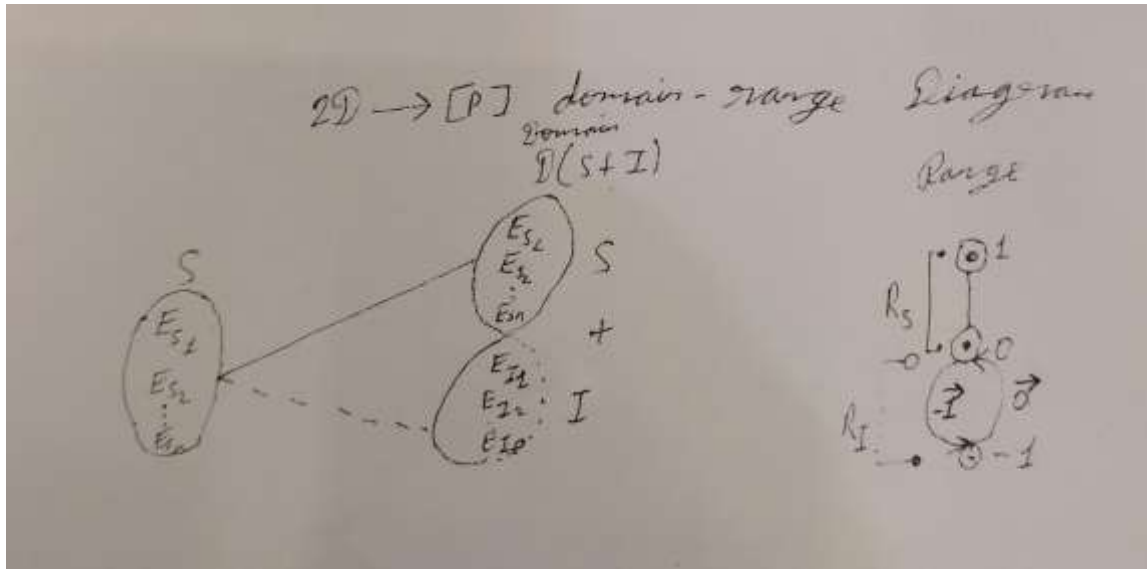 2D → [P] domain-range Diagram
Domain
D(S+I)
Range
S
E_S1
E_S2
⋮
E_S1
E_S2
⋮
E_Sn
S
+
E_I1
E_I2
I
R_S
1
0
-0
-I→
0→
R_I
-1